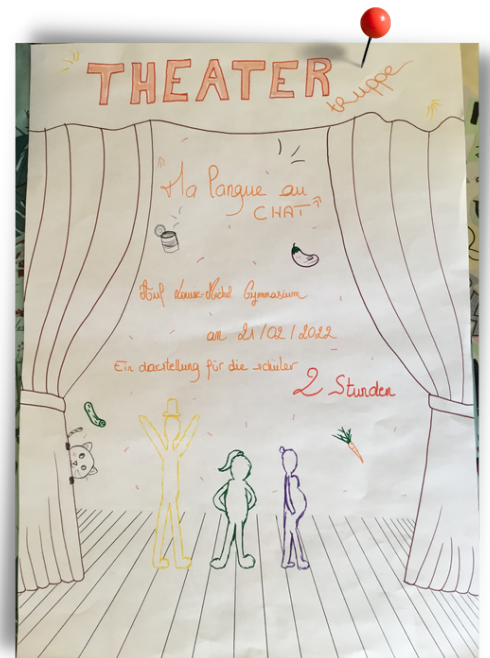 THEATER
truppe
"Ma langue au
CHAT"
Auf Louise-Michel Gymnasium
am 21/02/2022
Ein darstellung für die schüler
2 Stunden